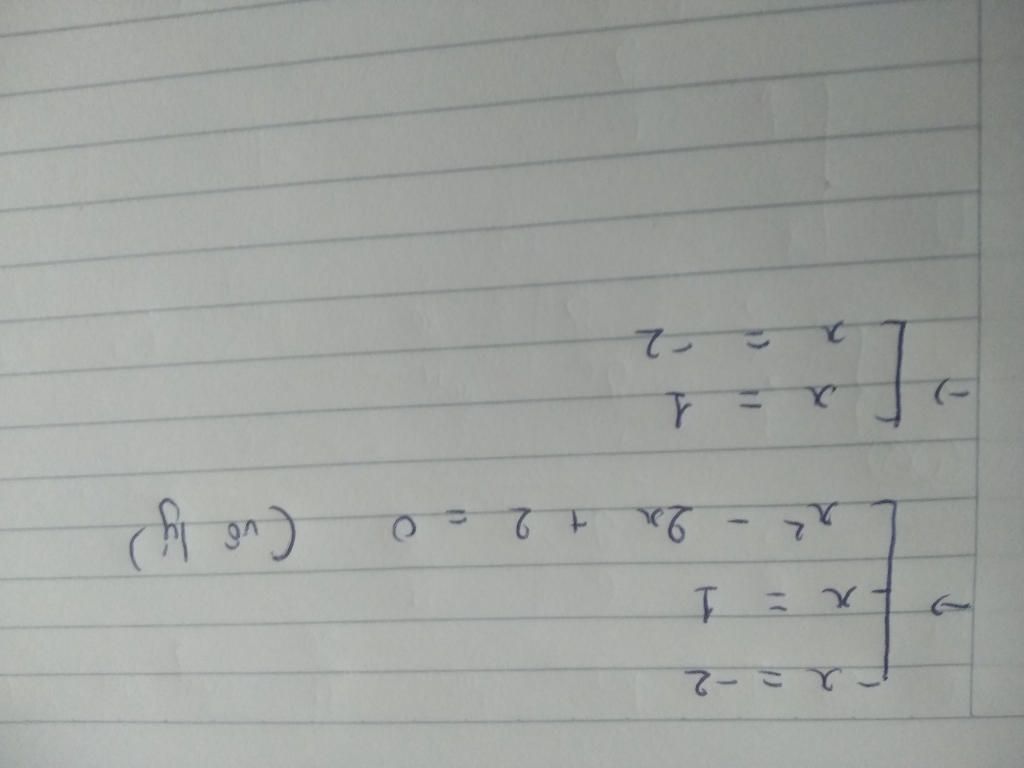 x = -2
→ x = 1
x² - 2x + 2 = 0 (vô lý)
→ x = 1
x = -2